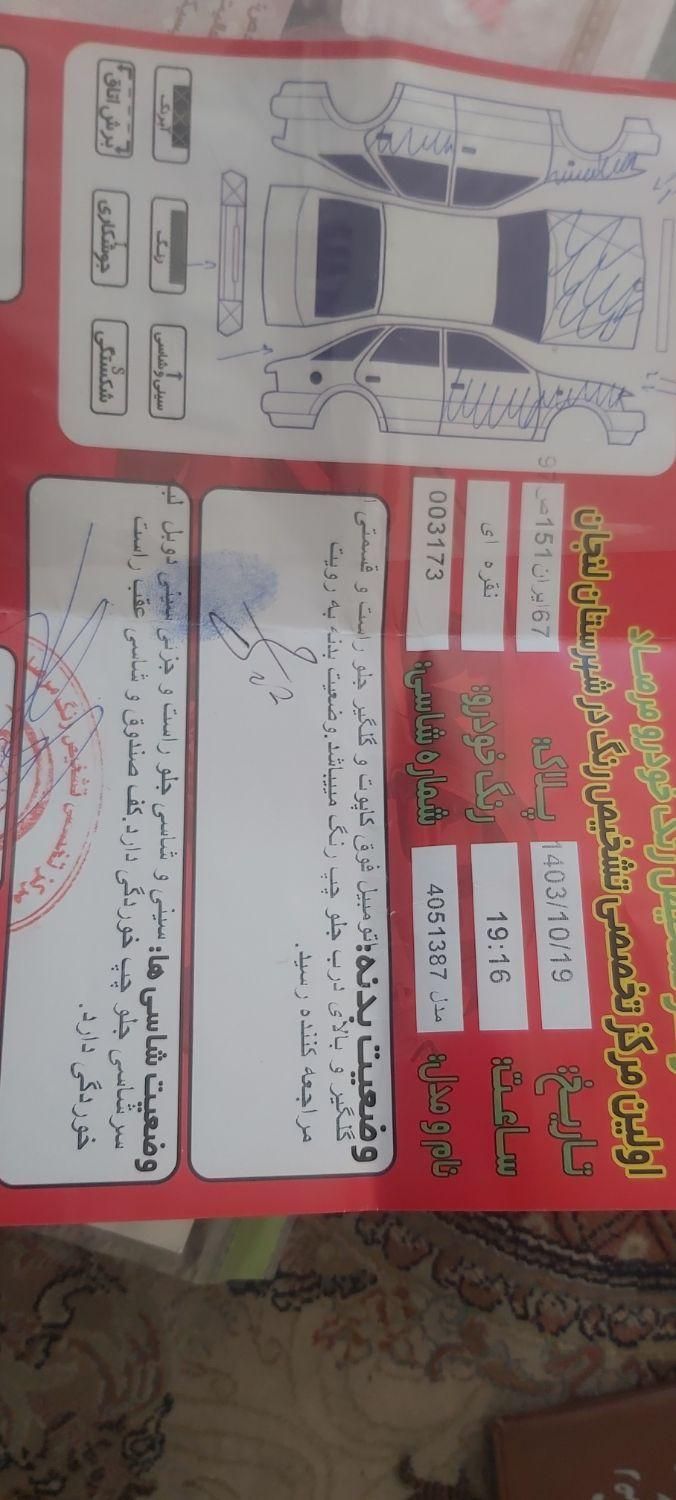 رنگ خودرو مرصاد
اولین مرکز تخصصی تشخیص رنگ در شهرستان لنجان
تاریخ: 1403/10/19
پلاک: 67ایران151ص97
ساعت: 19:16
رنگ خودرو: نقره ای
نام و مدل: 405 مدل 1387
شماره شاسی: 003173
وضعیت بدنه: اتومبیل فوق کاپوت و گلگیر جلو راست و قسمتی از
گلگیر و بالای درب جلو چپ رنگ میباشد.وضعیت بدنه به رویت
مراجعه کننده رسید.
وضعیت شاسی ها: سینی و شاسی جلو راست و جزئی سینی دوبل لب
سرشاسی جلو چپ خوردگی دارد.کف صندوق و شاسی عقب راست
خوردگی دارد.
آبرنگ
رنگ
سینی و شاسی
برش اتاق
جوشکاری
شکستگی
مرکز تخصصی تشخیص رنگ